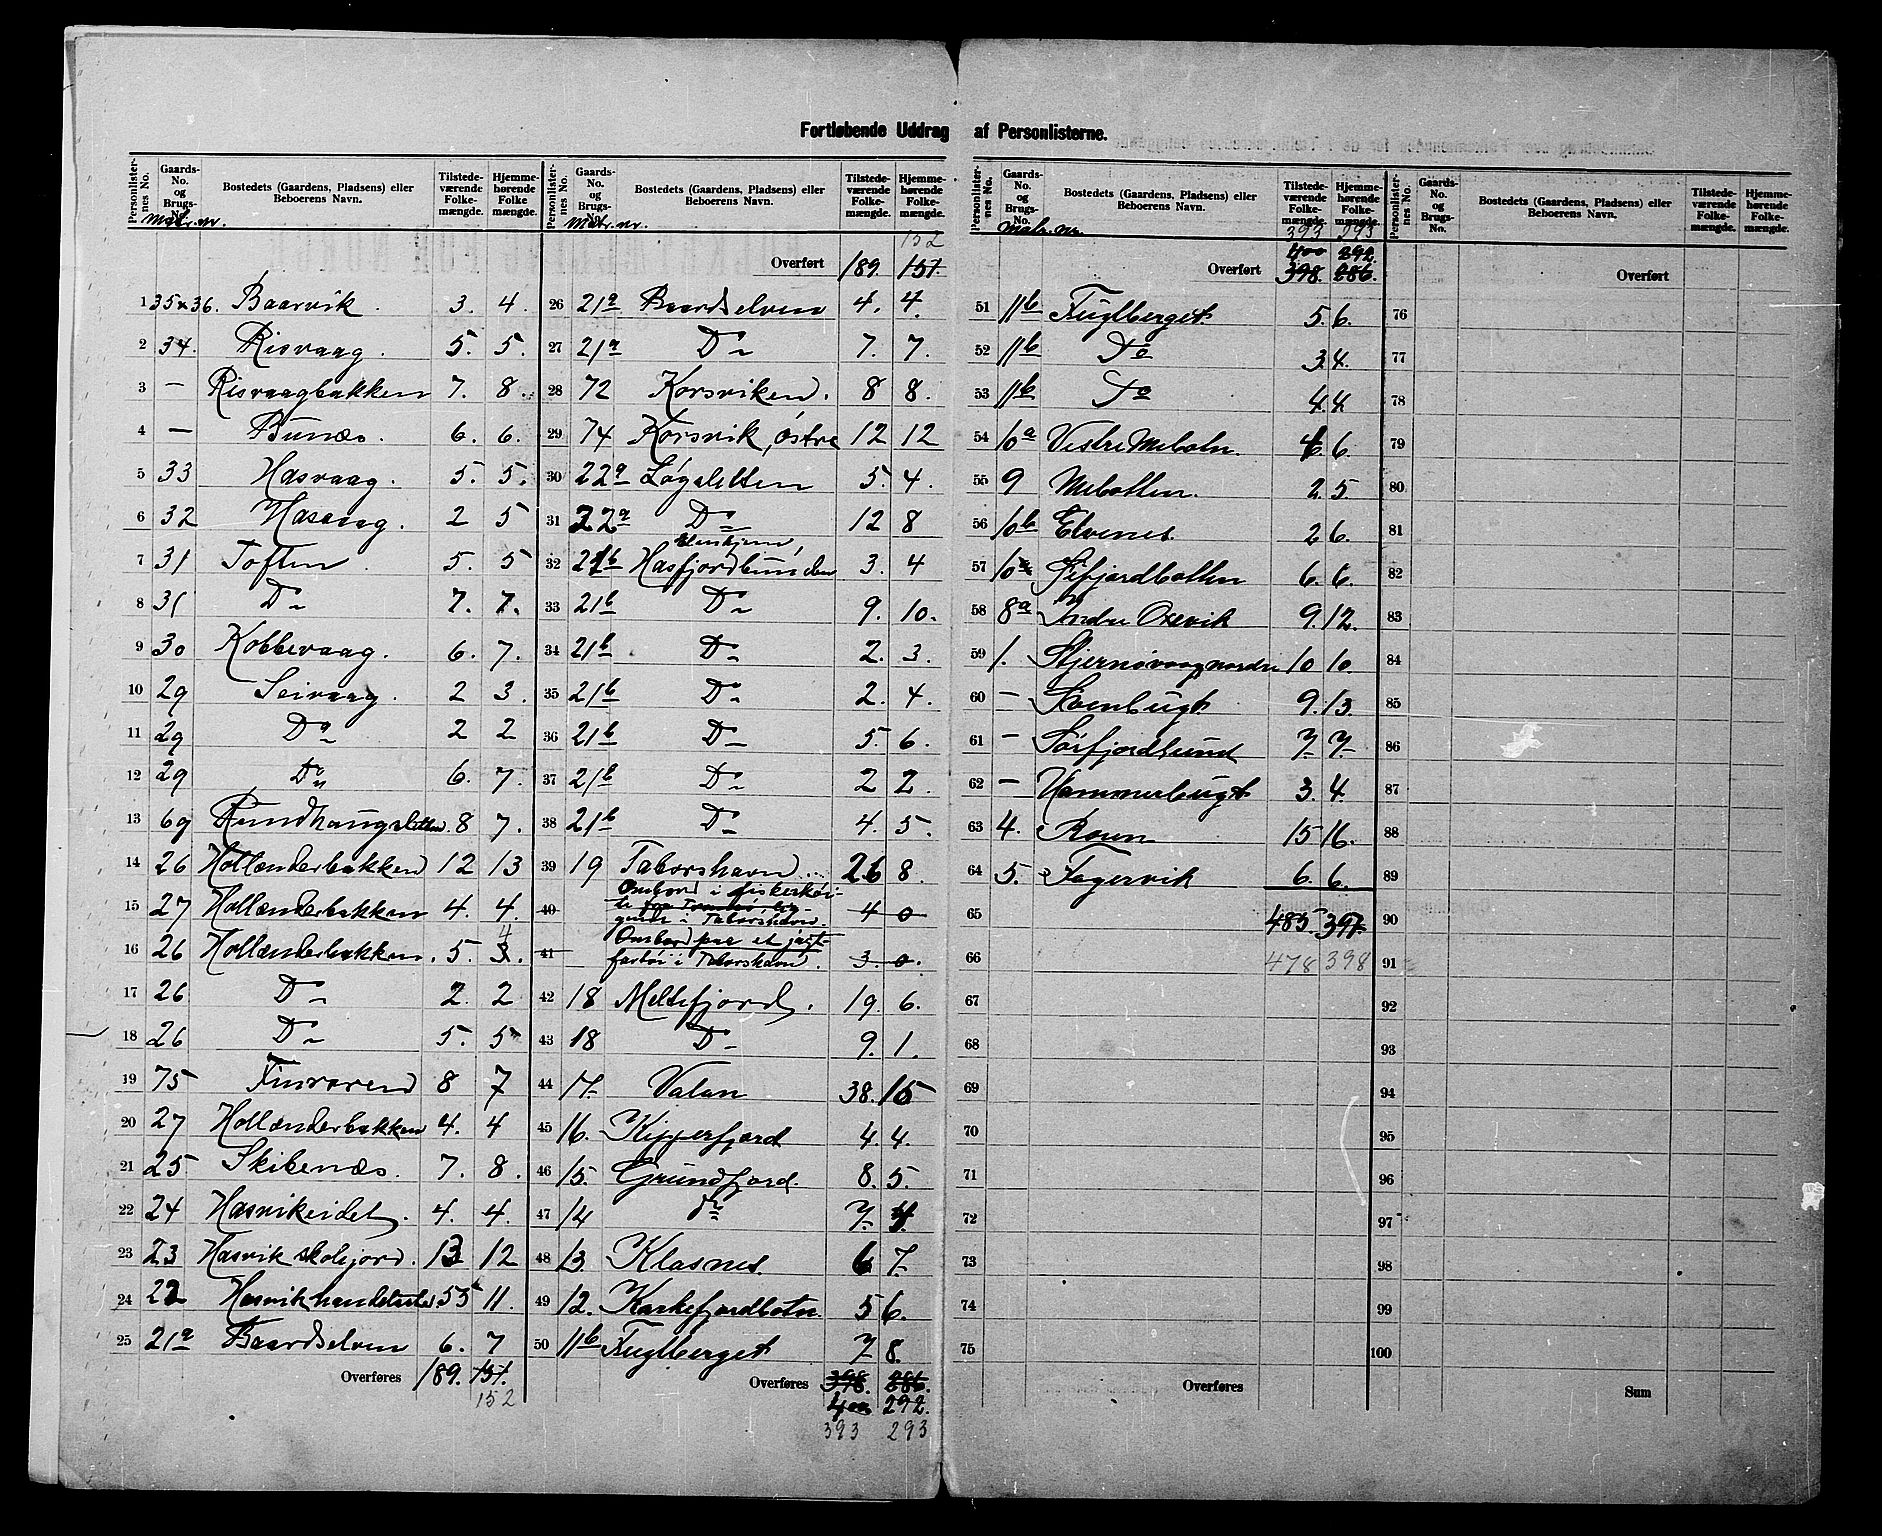 Fortløbende Uddrag af Personlisterne.
Personlister-nes No. | Gaards-No. og Brugs-No. | Bostedets (Gaardens, Pladsens) eller Beboerens Navn. | Tilstede-værende Folke-mængde. | Hjemme-hørende Folke mængde.
Matr. nr.
1 35 x 36. Baarvik. 3. 4.
2 34. Risvaag. 5. 5.
3 — Risvaagbakken 7. 8.
4 — Bunæs. 6. 6.
5 33 Hasvaag. 5. 5.
6 32 Hasvaag. 2 5
7 31 Toften 5. 5
8 31 Do 7. 7.
9 30 Kobbevaag. 6. 7.
10 29 Seivaag. 2 3.
11 29 Do 2 2
12 29 Do 6. 7.
13 69 Rundhaugsletten. 8 7.
14 26 Hollænderbakken 12 13
15 27 Hollænderbakken 4. 4.
16 26 Hollænderbakken. 5. 3. 4
17 26 Do 2. 2
18 26 Do 5. 5
19 75 Finvaren 8 7
20 27 Hollænderbakken 4. 4
21 25 Skibenæs. 7. 8.
22 24 Hasvikeidet. 4. 4.
23 23 Hasvik skolejord. 13 12
24 22 Hasvik handelssted 55 11.
25 21a Baardselven 6. 7
Overføres 189. 151.
152
Personlister-nes No. | Gaards-No. og Brugs-No. | Bostedets (Gaardens, Pladsens) eller Beboerens Navn. | Tilstede-værende Folke-mængde. | Hjemme-hørende Folke-mængde.
Matr. nr.
152
Overført 189. 151.
26 21a Baardselven 4. 4.
27 21a Do 7. 7.
28 72 Korsviken. 8 8.
29 74 Korsvik, østre 12 12
30 22a Løgsletten 5. 4.
31 22a Do 12 8
32 21b Hasfjordbunden 3. 4
33 21b Do 9. 10.
34 21b Do 2. 3.
35 21b Do 2. 4.
36 21b Do 5. 6.
37 21b Do 2 2.
38 21b Do 4. 5.
39 19 Taborshavn 26 8.
40 Ombord i fiskerkøi-
for Tromsø lig-
gende i Taborshavn. 4 0
41 Ombord paa et jagt-
fartøi i Taborshavn. 3. 0.
42 18 Meltefjord. 19 6.
43 18 Do 9. 1.
44 17. Valan 38. 15
45 16. Kipperfjord 4 4.
46 15. Grundfjord. 8. 5.
47 14 do 7. 4.
48 13. Klasnes. 6 7.
49 12. Karkefjordbotn 5 6.
50 11b Fuglberget 7 8.
Overføres 398. 286.
400 292.
393 293
Personlister-nes No. | Gaards-No. og Brugs-No. | Bostedets (Gaardens, Pladsens) eller Beboerens Navn. | Tilstede-værende Folke-mængde. | Hjemme-hørende Folke-mængde.
Matr. nr.
393 293
400 292.
Overført 398. 286.
51 11b Fuglberget 5. 6.
52 11b Do 3 4.
53 11b Do 4. 4.
54 10a Vestre Mebotn. 4 6.
55 9 Mebotten. 2. 5.
56 10b Elvenes. 2 6.
57 10a Sifjordbotten 6. 6.
58 8a Indre Oxevik 9. 12.
59 1. Stjernøvaag nordre 10 10.
60 — Kvenbugt 9. 13.
61 — Sørfjordsund 7. 7.
62 — Hammerbugt 3. 4.
63 4. Roren 15 16.
64 5. Fagervik 6. 6.
65 485. 397.
66 478 398
67
68
69
70
71
72
73
74
75
Overføres
Personlister-nes No. | Gaards-No. og Brugs-No. | Bostedets (Gaardens, Pladsens) eller Beboerens Navn. | Tilstede-værende Folke-mængde. | Hjemme-hørende Folke-mængde.
Overført
76
77
78
79
80
81
82
83
84
85
86
87
88
89
90
91
92
93
94
95
96
97
98
99
100
Sum